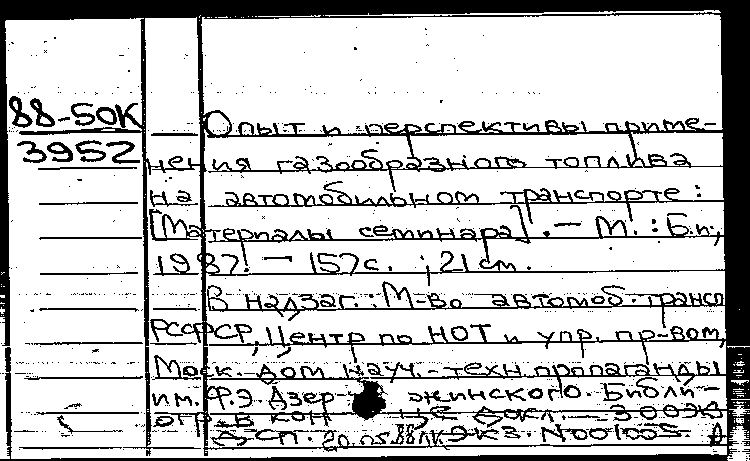 88-50К
3952
Опыт и перспективы приме-
нения газообразного топлива
на автомобильном транспорте :
[Материалы семинара]. — М. : Б.и.,
1987. — 157с. ; 21 см.
В надзаг.: М-во автомоб. трансп
РСФСР, Центр по НОТ и упр. пр-вом,
Моск. дом науч.-техн. пропаганды
им. Ф.Э. Дзер жинского. Библи-
огр. в кон це докл. — 300экз
Дсп. 20.05.88 экз. N00100S.